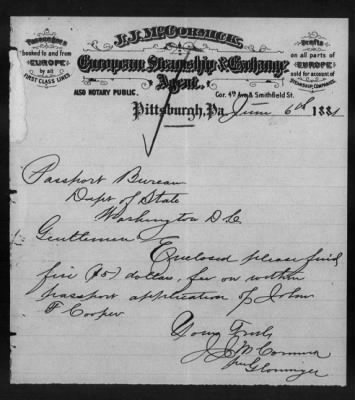 J. J. McCORMICK,
Passengers
booked to and from
EUROPE
by all
FIRST CLASS LINES
Drafts
on all parts of
EUROPE
sold for account of
STEAMSHIP COMPANIES
European Steamship & Exchange
Agent.
ALSO NOTARY PUBLIC.
Cor. 4th Ave & Smithfield St.
Pittsburgh, Pa. June 6th 1881
Passport Bureau
Dept of State
Washington D C
Gentlemen
Enclosed please find
five ($5) dollars, fee on within
passport application of John
F Cooper
Yours Truly
J J McCormick
per